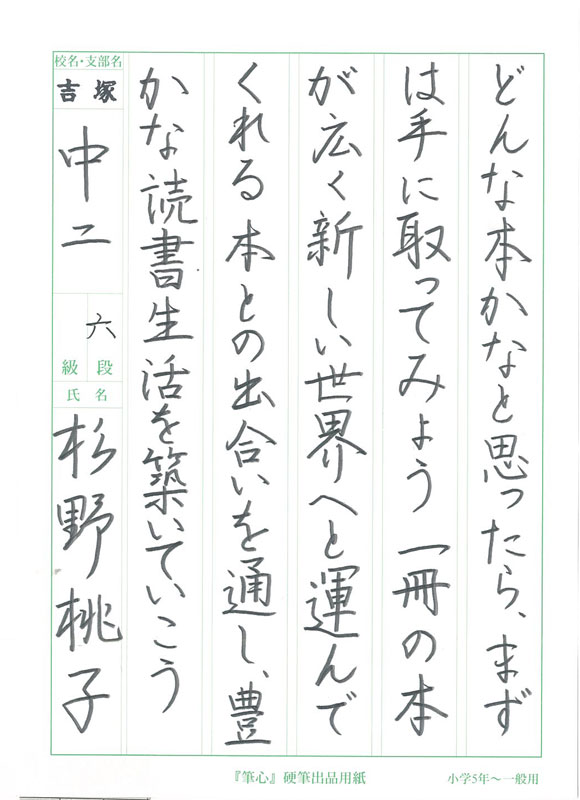 どんな本かなと思ったら、まず
は手に取ってみよう一冊の本
が広く新しい世界へと運んで
くれる本との出合いを通し、豊
かな読書生活を築いていこう
校名・支部名
吉塚
中二
六
段
級
氏名
杉野桃子
『筆心』硬筆出品用紙
小学5年～一般用